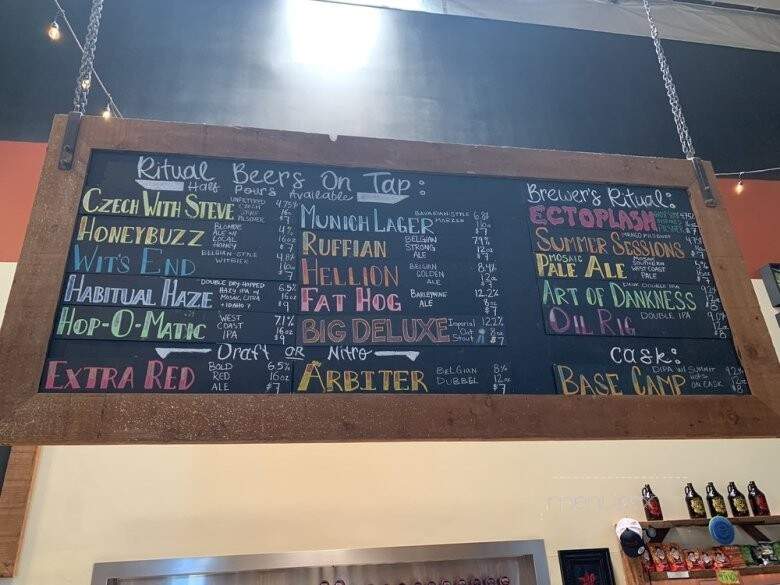 Ritual Beers On Tap:
Half Pours Available
Czech With Steve
Unfiltered
Czech
Style
Pilsner
4.75%
16oz
$7
Honeybuzz
Blonde
Ale w/
Local
Honey
4%
16oz
$7
Wit's End
Belgian-Style
Witbier
4.8%
16oz
$7
Habitual Haze
Double Dry-Hopped
Hazy IPA w/
Mosaic, Citra
+ Idaho 7
6.5%
16oz
$8
Hop-O-Matic
West
Coast
IPA
7.1%
16oz
$7
Munich Lager
Bavarian-Style
Marzen
6.8%
$7
Ruffian
Belgian
Strong
Ale
7.9%
12oz
$7
Hellion
Belgian
Golden
Ale
8.4%
12oz
$7
Fat Hog
Barleywine
Ale
12.2%
8oz
$7
Big Deluxe
Imperial
Oat
Stout
12.2%
8oz
$7
Draft or Nitro
Extra Red
Bold
Red
Ale
6.5%
16oz
$7
Arbiter
Belgian
Dubbel
8%
12oz
$7
Brewer's Ritual:
Ectoplash
Summer Sessions
Mosaic
Pale Ale
Mosaic
Southern
West Coast
Pale
Art of Dankness
Dank Double IPA
Oil Rig
Double IPA
Cask:
Base Camp
DIPA w/ Summit
Hops
on Cask
9.2%
12oz
$8